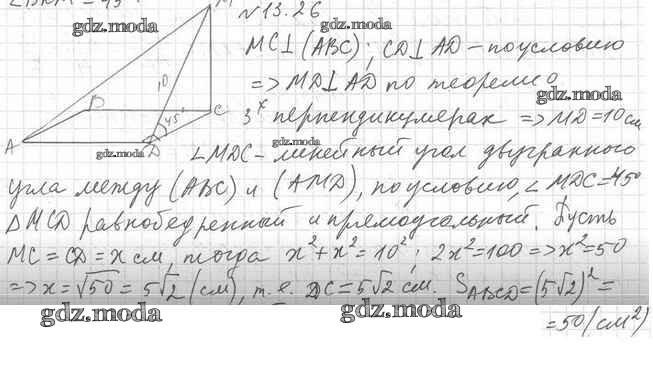 M
№ 13.26
gdz.moda
gdz.moda
MC⊥(ABC); CD⊥AD – по условию
=> MD⊥AD по теореме о
gdz.moda
10
B
45°
C
3х перпендикулярах => MD=10 см
A
D
gdz.moda
gdz.moda
∠MDC – линейный угол двугранного
угла между (ABC) и (AMD), по условию, ∠MDC=45°
△MCD равнобедренный и прямоугольный. Пусть
MC=CD=x см, тогда x²+x²=10²; 2x²=100 => x²=50
=> x=√50=5√2 (см), т.е. DC=5√2 см. S ABCD=(5√2)²=
gdz.moda
gdz.moda
=50 (см²)